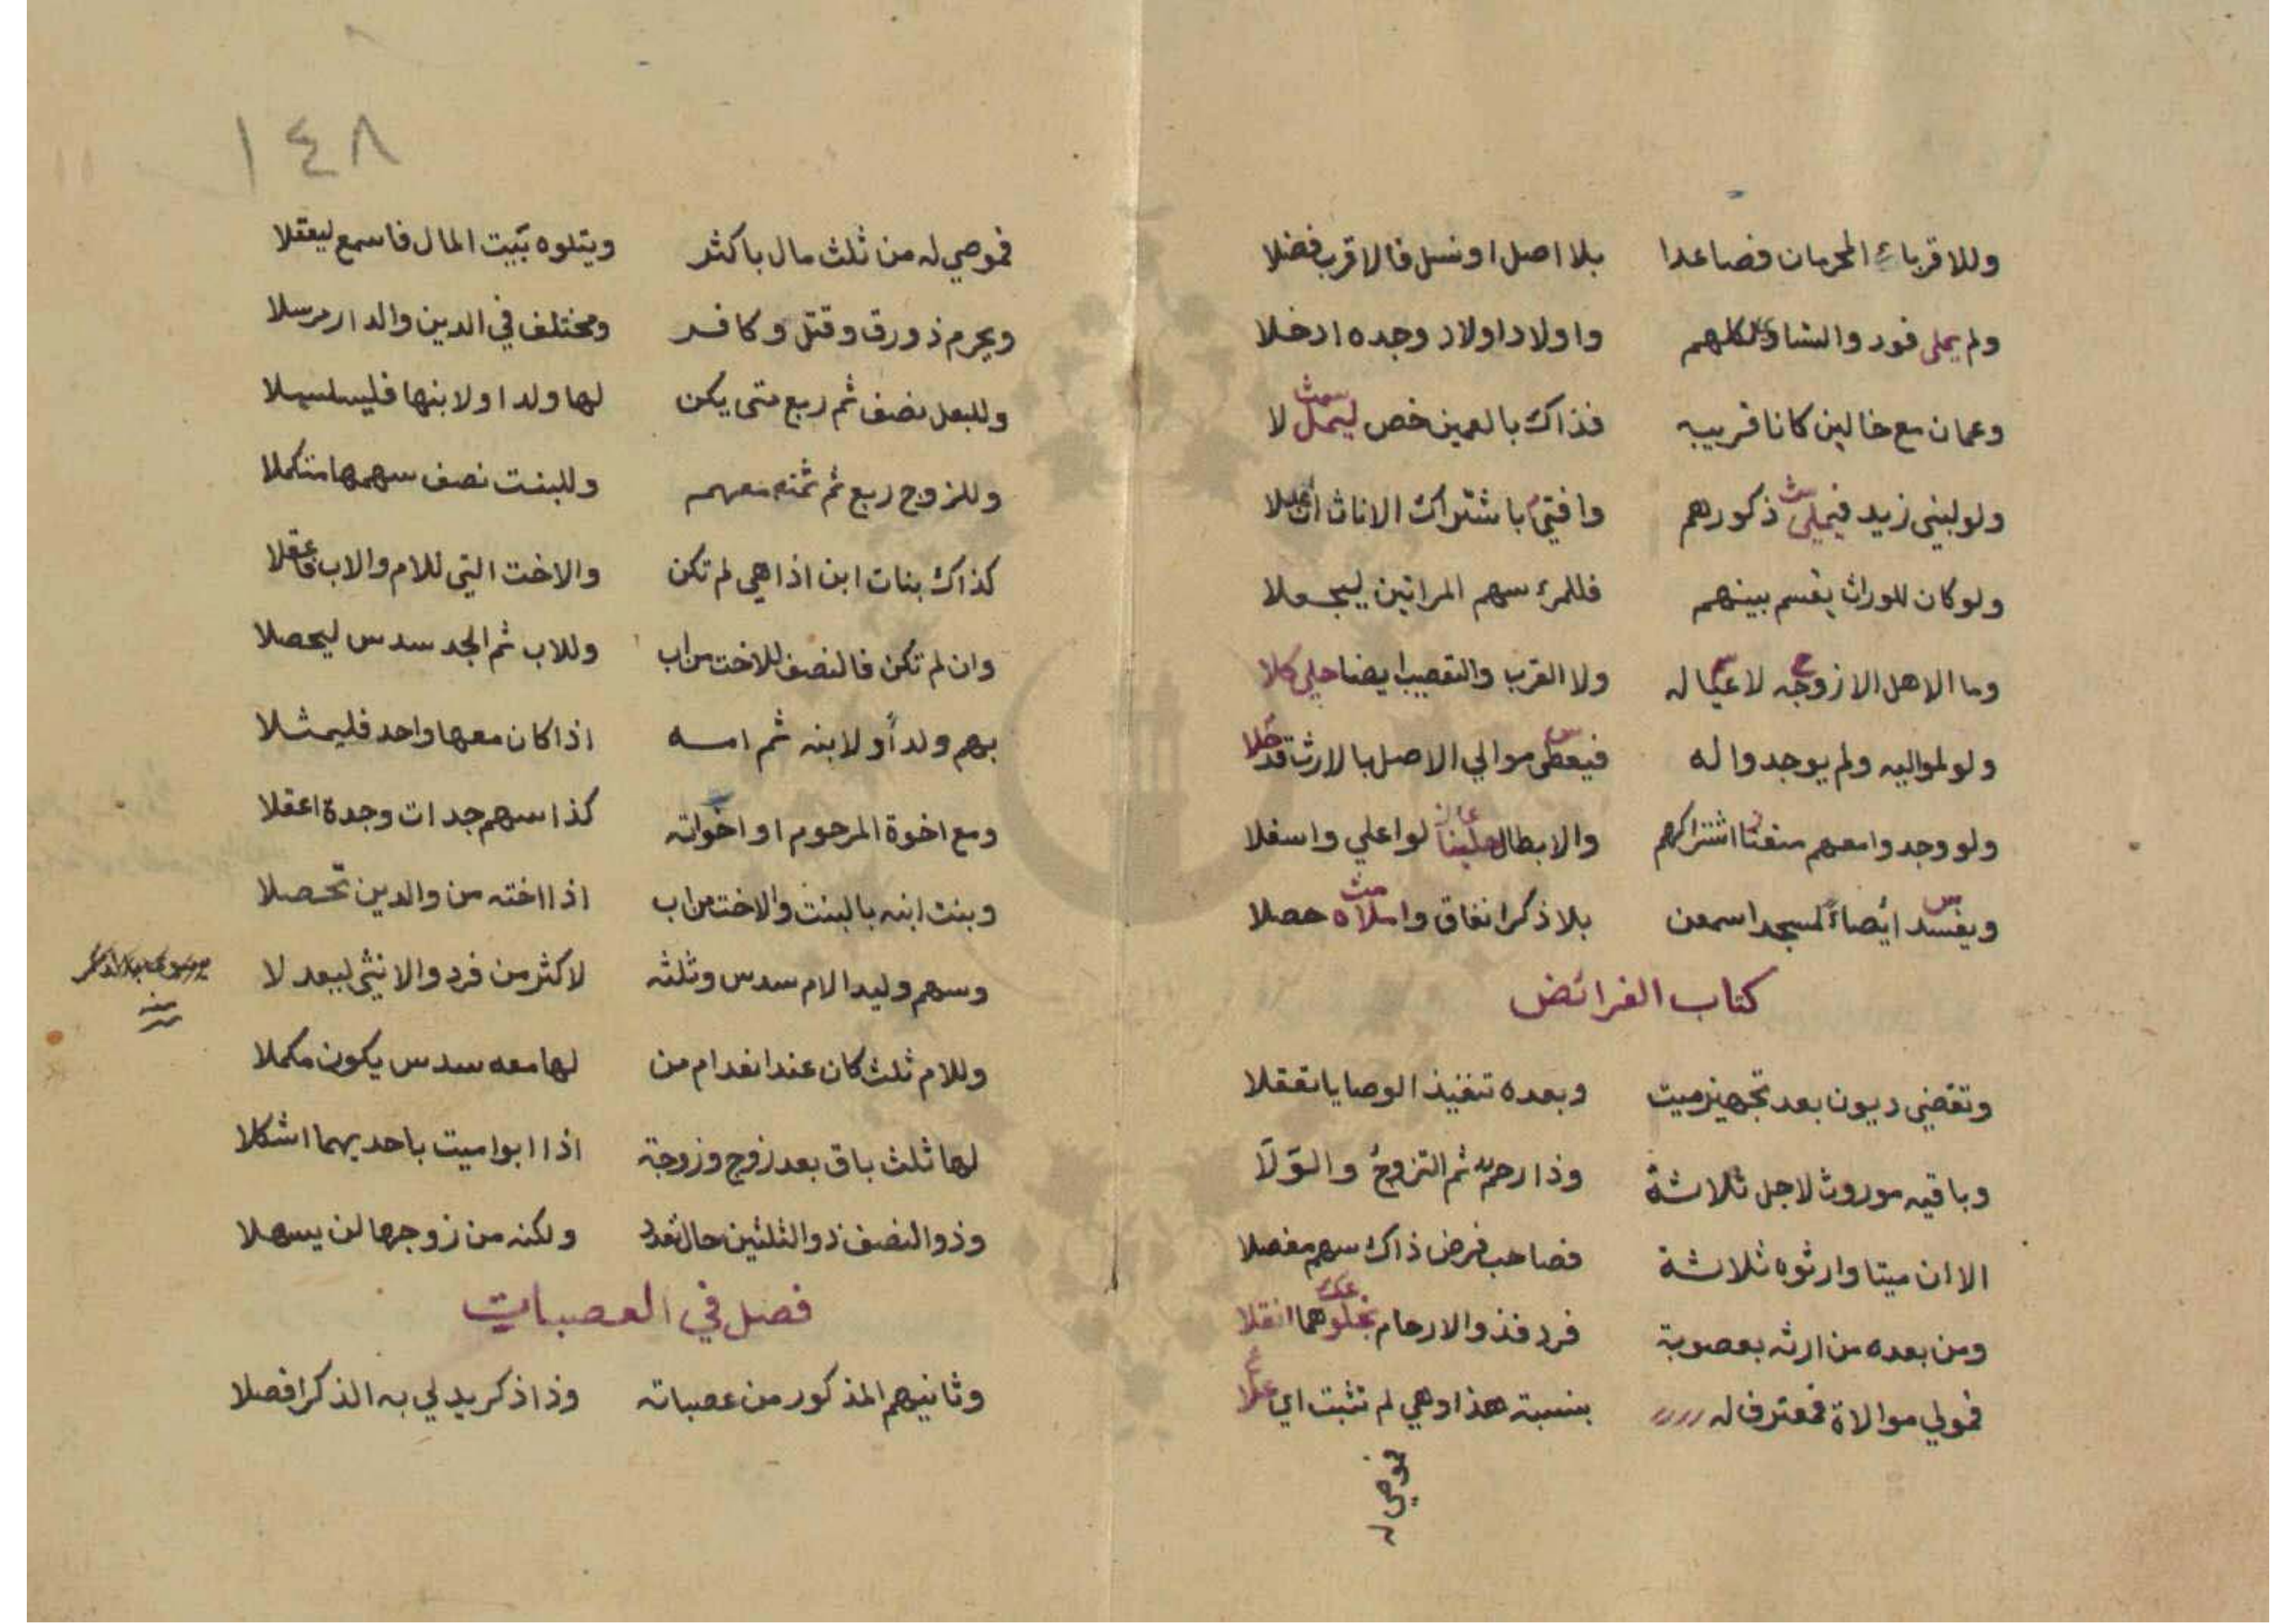 وللاقرباء المحرمان فصاعدا بلا اصل او نسل فالاقرب فضلا
ولم يملى فورد والتساو لكلهم واولاد اولاد وجده ادخلا
وعمان مع خالين كانا قريبه فذاك بالعمين خص ليمل لا
ولو لبني زيد فيملى ذكورهم وافتى باشتراك الاناث
ولو كان للوراث يقسم بينهم فللمرء سهم المراتين ليجعلا
وما الاهل الا زوجه لا عياله ولا القرب والتعصيب ايضا كلا
ولو لمواليه ولم يوجدوا له فيعطى موالي الاصل بالارث قد
ولو وجدوا معهم اشتراكهم والابطال لو اعلي واسفلا
ويفسد ايصاء لمسجد اسمعن بلا ذكر انفاق واملاه حصلا
كتاب الفرائض
وتقضي ديون بعد تجهيز ميت وبعده تنفيذ الوصايا تعقلا
وباقيه موروث لاجل ثلاثة وذا رحم ثم التزوج والولا
الا ان ميتا وارثوه ثلاثة فصاحب فرض ذاك سهم مفصلا
ومن بعده من ارثه بعصوبة فرد فذو الارحام هما انقلا
فمولي موالاة فمعترف له بنسبة هذا وهي لم تثبت اي علا
فموصي له
١٤٨
فموصي له من ثلث مال باكثر ويتلوه بيت المال فاسمع ليعقلا
ويحرم ذو رق وقتل وكافر ومختلف في الدين والدار مرسلا
وللبعل نصف ثم ربع متى يكن لها ولد او لابنها فليسلسلا
وللزوج ربع ثم ثمنه معهم وللبنت نصف سهمها متكملا
كذاك بنات ابن اذا هي لم تكن والاخت التي للام والاب
وان لم تكن فالنصف للاخت من اب وللاب ثم الجد سدس ليحصلا
بهم ولد أو لابنه ثم امه اذا كان معها واحد فليمثلا
ومع اخوة المرحوم او اخواته كذا سهم جدات وجدة اعقلا
وبنت ابنه بالبنت والاخت من اب اذا اخته من والدين تحصلا
وسهم وليد الام سدس وثلثه لاكثر من فرد والانثى ليعدلا
وللام ثلث كان عند انعدام من لها معه سدس يكون مكملا
لها ثلث باق بعد زوج وزوجة اذا ابوا ميت باحديهما اشكلا
وذو النصف ذو الثلثين حال تعدد ولكنه من زوجها لن يسهلا
فصل في العصبات
وثانيهم المذكور من عصباته وذا ذكر يدلي به الذكر افصلا